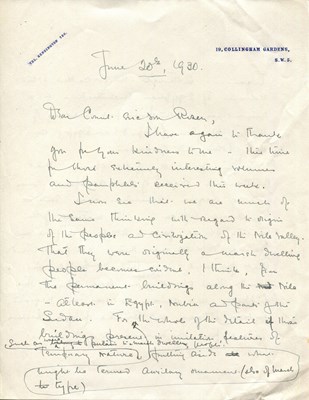 TEL. KENSINGTON
19, COLLINGHAM GARDENS,
S.W.5.
June 20th, 1930.
Dear Count
I have again to thank
you for your kindness to me - this time
for those extremely interesting volumes
and pamphlets received this week.
I now see that we are much of
the same thinking with regard to origin
of the peoples and civilization of the Nile Valley.
That they were originally a marsh dwelling
people becomes evident, I think, from
the permanent buildings along the Nile
- at least in Egypt, Nubia and parts of the
Sudan. For the whole of the detail of their
buildings present in imitation features of
such as marsh dwelling people
temporary nature, building aids or what
might be termed auxiliary ornament (also of marsh
to type)